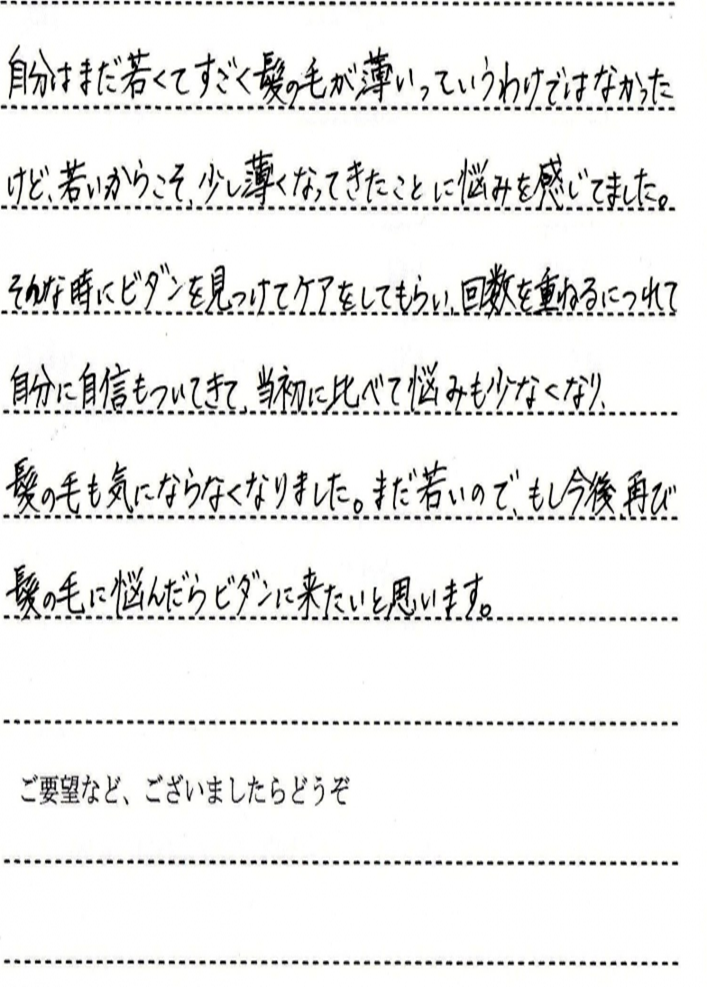 自分はまだ若くてすごく髪の毛が薄いっていうわけではなかった
けど、若いからこそ、少し薄くなってきたことに悩みを感じてました。
そんな時にビダンを見つけてケアをしてもらい、回数を重ねるにつれて
自分に自信もついてきて、当初に比べて悩みも少なくなり、
髪の毛も気にならなくなりました。まだ若いので、もし今後、再び
髪の毛に悩んだらビダンに来たいと思います。
ご要望など、ございましたらどうぞ